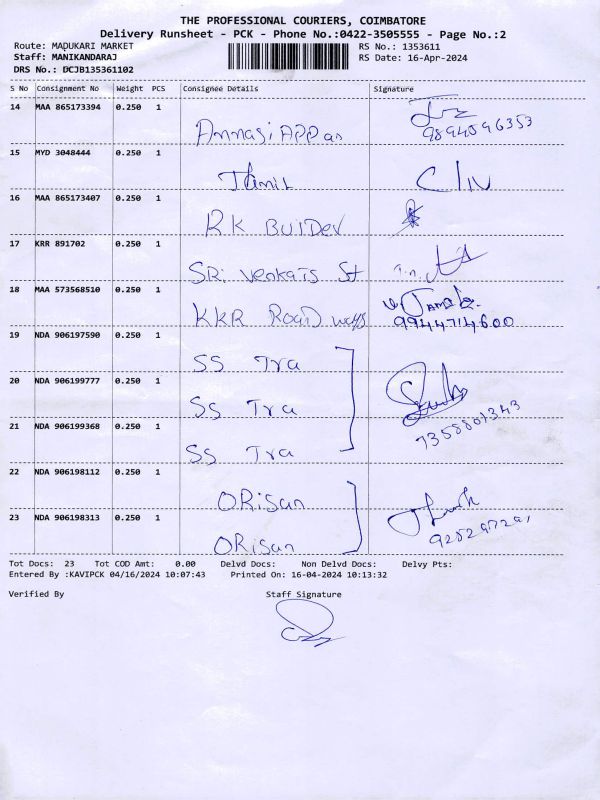 THE PROFESSIONAL COURIERS, COIMBATORE
Delivery Runsheet - PCK - Phone No.:0422-3505555 - Page No.:2
Route: MADUKARI MARKET RS No.: 1353611
Staff: MANIKANDARAJ RS Date: 16-Apr-2024
DRS No.: DCJB135361102
S No Consignment No Weight PCS Consignee Details Signature
14 MAA 865173394 0.250 1
9894596353
15 MYD 3048444 0.250 1 Tamil
16 MAA 865173407 0.250 1 RK
17 KRR 891702 0.250 1 SRi Venkats St
18 MAA 573568510 0.250 1 KKR Road ways
9944714600
19 NDA 906197590 0.250 1 SS Tra
20 NDA 906199777 0.250 1 SS Tra
7358801343
21 NDA 906199368 0.250 1 SS Tra
22 NDA 906198112 0.250 1 ORisan
23 NDA 906198313 0.250 1 ORisan
Tot Docs: 23 Tot COD Amt: 0.00 Delvd Docs: Non Delvd Docs: Delvy Pts:
Entered By :KAVIPCK 04/16/2024 10:07:43 Printed On: 16-04-2024 10:13:32
Verified By Staff Signature